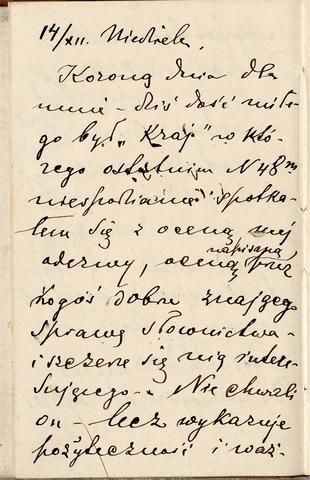 14/XII. Niedziela.
Koroną dnia dla
mnie – dziś dość miłe-
go był „Kraj" w któ-
rego ostatnim N 48 m
niespodzianie spotka-
łem się z oceną mej
odezwy, oceną napisaną przez
kogoś dobrze znającego
sprawę słownictwa –
i szczerze się nią intere-
sującego – Nie chwali
on – lecz wykazuje
pożyteczność i waż-